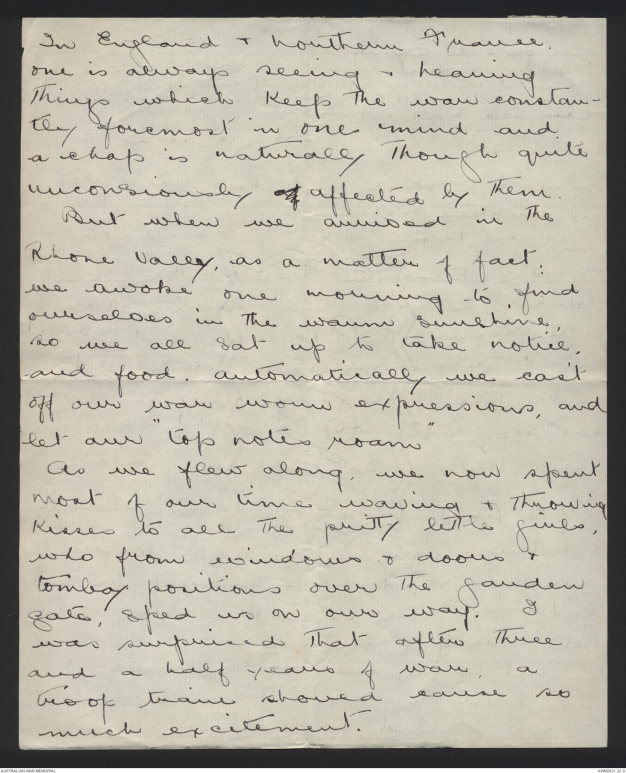 In England & Northern France.
one is always seeing & hearing
things which keep the war constan-
tly foremost in ones mind and
a chap is naturally though quite
unconsiously affected by them.
But when we arrived in the
Rhone Valley, as a matter of fact,
we awoke one morning to find
ourselves in the warm sunshine,
so we all sat up to take notice,
and food. automatically we cast
off our war worn expressions, and
let our "top notes roam"
As we flew along, we now spent
most of our time waving & throwing
kisses to all the pritty little girls,
who from windows & doors &
tomboy positions over the garden
gate, sped us on our way. I
was surprised that after three
and a half years of war, a
troop train should cause so
much excitement.
AUSTRALIAN WAR MEMORIAL